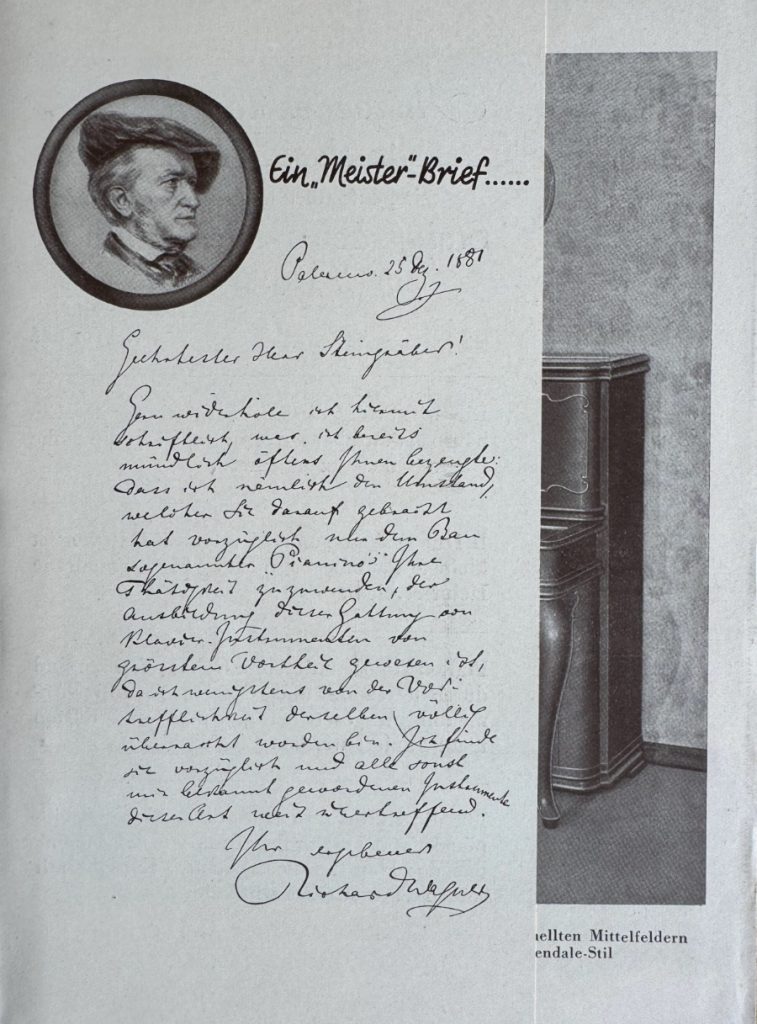 Ein „Meister“-Brief......
Palermo. 25 Dez. 1881
Geehrtester Herr Steingräber!
Gern widerhole ich hiermit
schriftlich, was ich bereits
mündlich öfters Ihnen bezeugte:
Dass ich nämlich den Umstand,
welcher Sie darauf gebracht
hat vorzüglich nur dem Bau
sogenannter „Pianino's“ Ihre
Thätigkeit zuzuwenden, der
Ausbildung dieser Gattung von
Klavier-Instrumenten von
grösstem Vortheil gewesen ist,
da ich wenigstens von der Vor-
trefflichkeit derselben völlig
überrascht worden bin. Ich finde
sie vorzüglich und alle sonst
mir bekannt gewordenen Instrumente
dieser Art weit übertreffend.
Ihr ergebener
Richard Wagner
nellten Mittelfeldern
endale-Stil